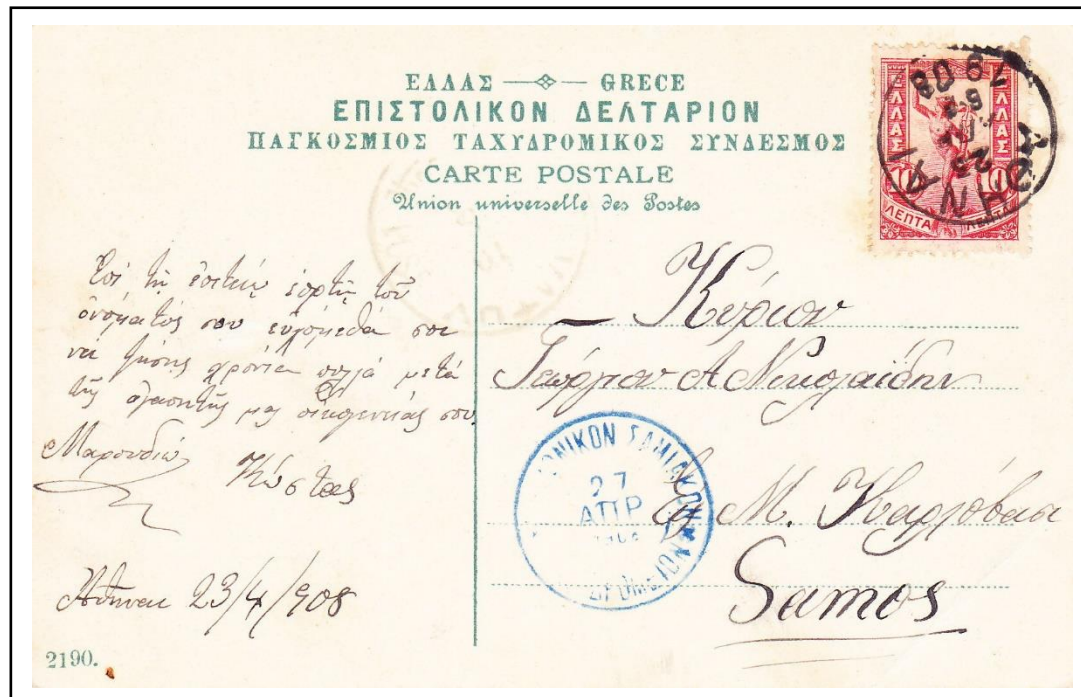 ΕΛΛΑΣ — GRECE
ΕΠΙΣΤΟΛΙΚΟΝ ΔΕΛΤΑΡΙΟΝ
ΠΑΓΚΟΣΜΙΟΣ ΤΑΧΥΔΡΟΜΙΚΟΣ ΣΥΝΔΕΣΜΟΣ
CARTE POSTALE
Union universelle des Postes
ΕΛΛΑΣ ΕΛΛΑΣ
10 10
ΛΕΠΤΑ ΛΕΠΤΑ
ΑΘΗΝΑΙ
08
Ἐπὶ τῇ ἑορτῇ τοῦ
ὀνόματός σου εὐχόμεθά σοι
νὰ ζήσῃς χρόνια πολλὰ μετὰ
τῆς ἀγαπητῆς μας οἰκογενείας σου
Μαρουδιώ
Κώστας
Ἀθῆναι 23/4/908
Κύριον
Γεώργιον Α Νικολαΐδην
ΣΑΜΙΑΚΩΝ
27
ΑΠΡ
Μ. Καρλόβασι
Samos
2190.